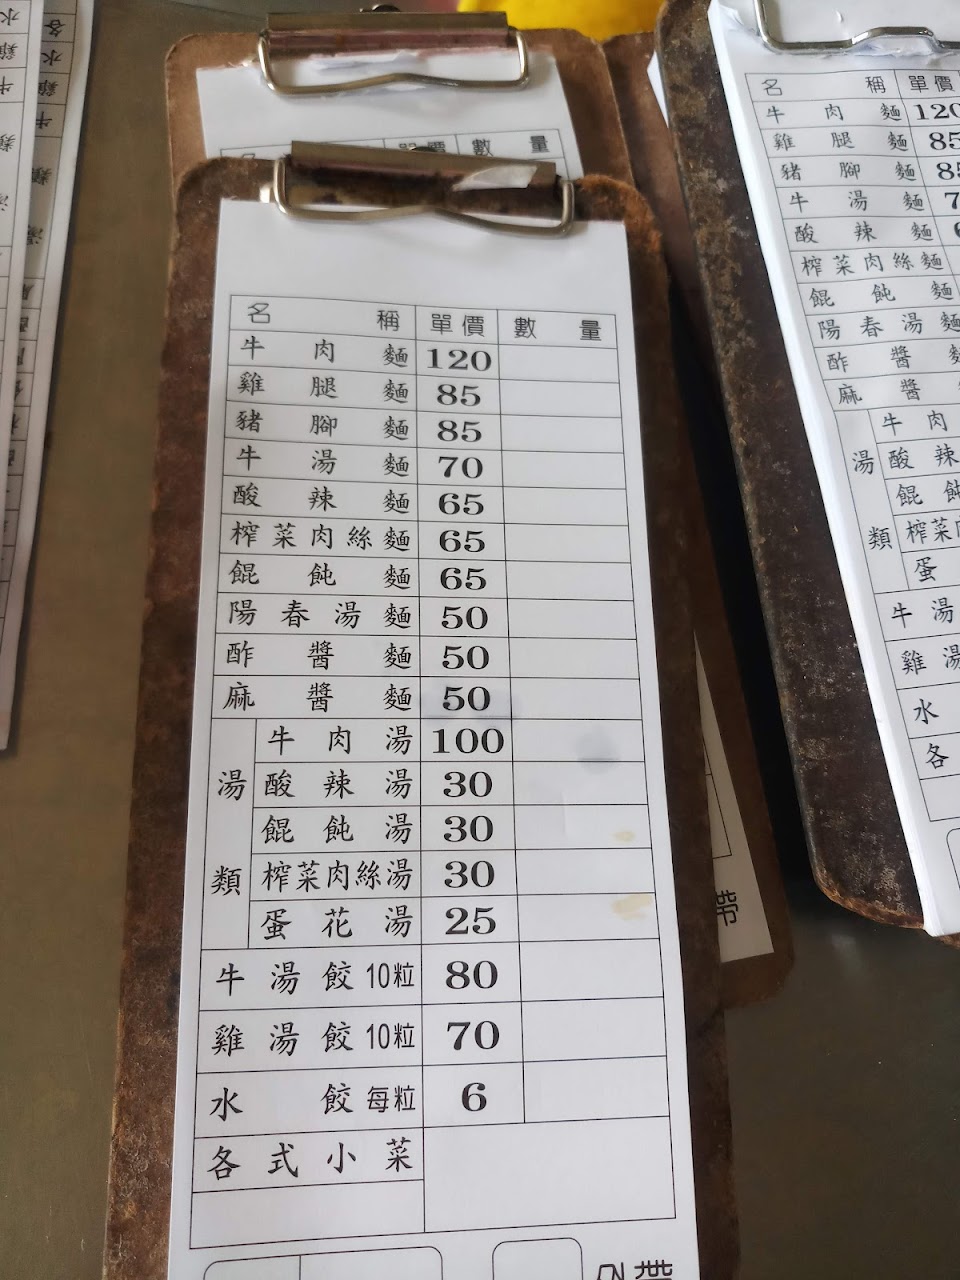 名稱 單價 數量
牛肉麵 120
雞腿麵 85
豬腳麵 85
牛湯麵 70
酸辣麵 65
榨菜肉絲麵 65
餛飩麵 65
陽春湯麵 50
酢醬麵 50
麻醬麵 50
湯類
牛肉湯 100
酸辣湯 30
餛飩湯 30
榨菜肉絲湯 30
蛋花湯 25
牛湯餃10粒 80
雞湯餃10粒 70
水餃每粒 6
各式小菜
單價 數量
名稱 單價
牛肉麵 120
雞腿麵 85
豬腳麵
牛湯麵
酸辣麵
榨菜肉絲麵
餛飩麵
陽春湯麵
酢醬
麻醬
湯類
牛肉
酸辣
餛飩
榨菜
蛋
牛湯
雞湯
水
各
帶